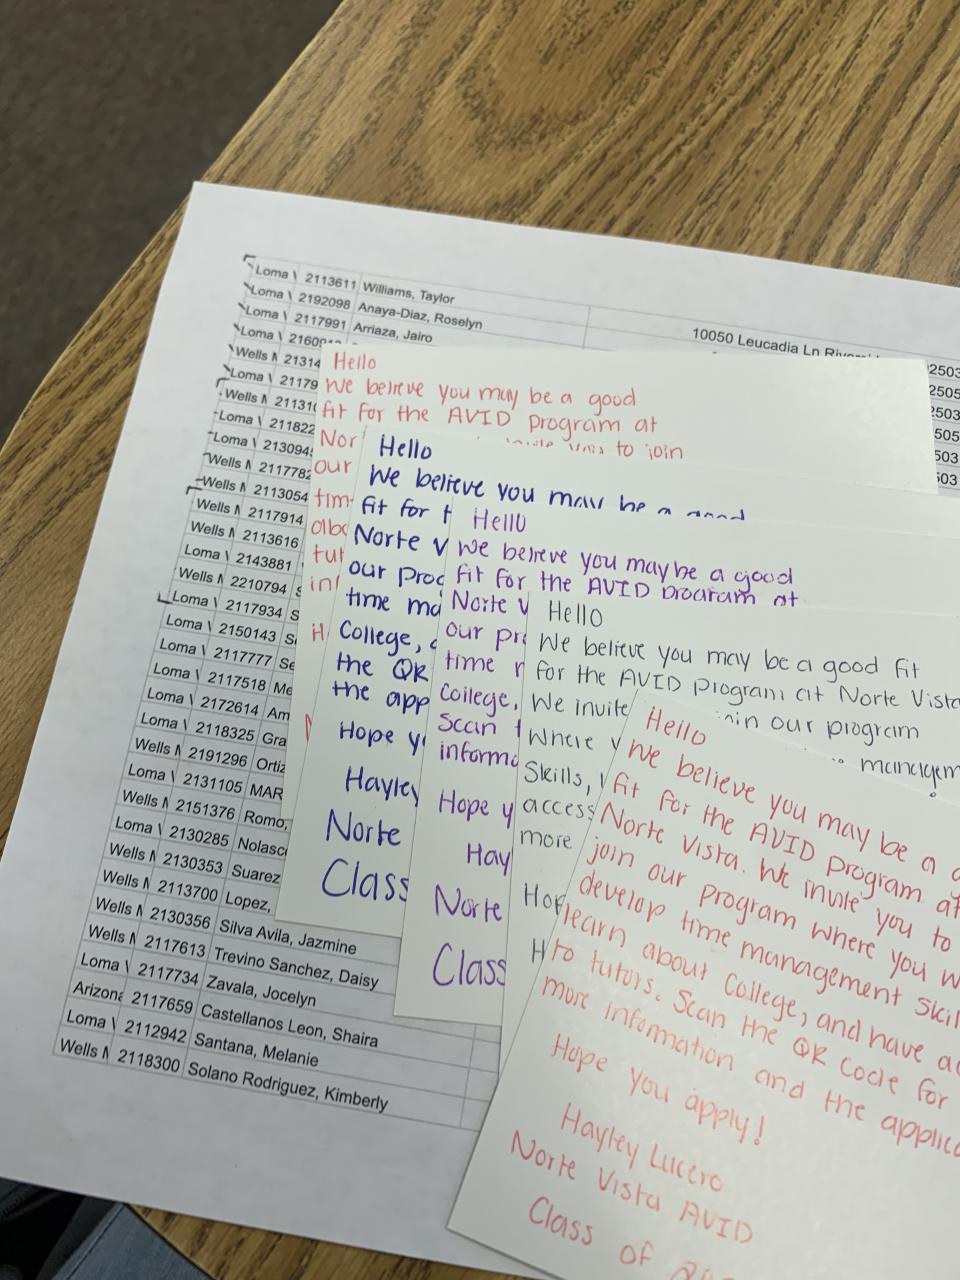 Loma 2113611 Williams, Taylor
Loma 2192098 Anaya-Diaz, Roselyn
10050 Leucadia Ln
Loma 2117991 Arriaza, Jairo
Loma
Wells
Loma
Wells
Loma
Loma
Wells 2117782
Wells 2113054
Wells 2117914
Wells 2113616
Loma 2143881
Wells 2210794
Loma 2117934
Loma 2150143
Loma 2117777
Loma 2117518
Loma 2172614
Loma 2118325
Wells 2191296
Loma 2131105
Wells 2151376 Romo,
Loma 2130285
Wells 2130353 Suarez
Wells 2113700 Lopez,
Wells 2130356 Silva Avila, Jazmine
Wells 2117613 Trevino Sanchez, Daisy
Loma 2117734 Zavala, Jocelyn
Arizona 2117659 Castellanos Leon, Shaira
Loma 2112942 Santana, Melanie
Wells 2118300 Solano Rodriguez, Kimberly
2503
2505
2503
505
503
503
Hello
We believe you may be a good
fit for the AVID Program at
to join
our
Hello
We believe you may be a good
fit for
Norte
our
time
College,
the QR
the
Hope
Hayley
Norte
Class
Hello
We believe you may be a good
fit for the AVID program at
Norte
our
time
College,
Scan
Hope
Norte
Class
Hello
We believe you may be a good fit
for the AVID Program at Norte Vista
We invite join our program
Where
Skills,
access
more
Hello
We believe you may be a
fit for the AVID Program at
Norte Vista. We invite you to
join our Program where you
develop time management
learn about College, and have
to tutors. Scan the QR Code for
more information and the
Hope you apply!
Hayley Lucero
Norte Vista AVID
Class of